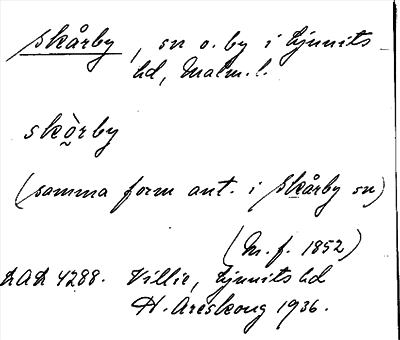 Skårby, sn o. by i Ljunits
hd, Malm. l.
skò̰rby
(samma form ant. i Skårby sn)
(M. f. 1852)
LAL 4288. Villie, Ljunits hd
H. Areskoug 1936.